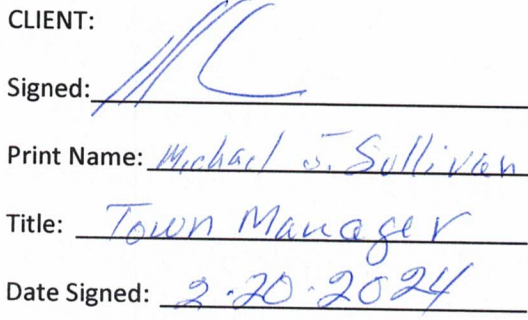 CLIENT:
Signed:
Print Name: Michael J. Sullivan
Title: Town Manager
Date Signed: 2-20-2024